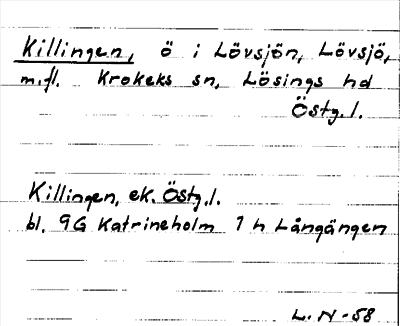 Killingen, ö i Lövsjön, Lövsjö,
m.fl. Krokeks sn, Lösings hd
Östg.l.
Killingen, ek. Östg.l.
bl. 9G Katrineholm 7 h Långängen
L. N-58